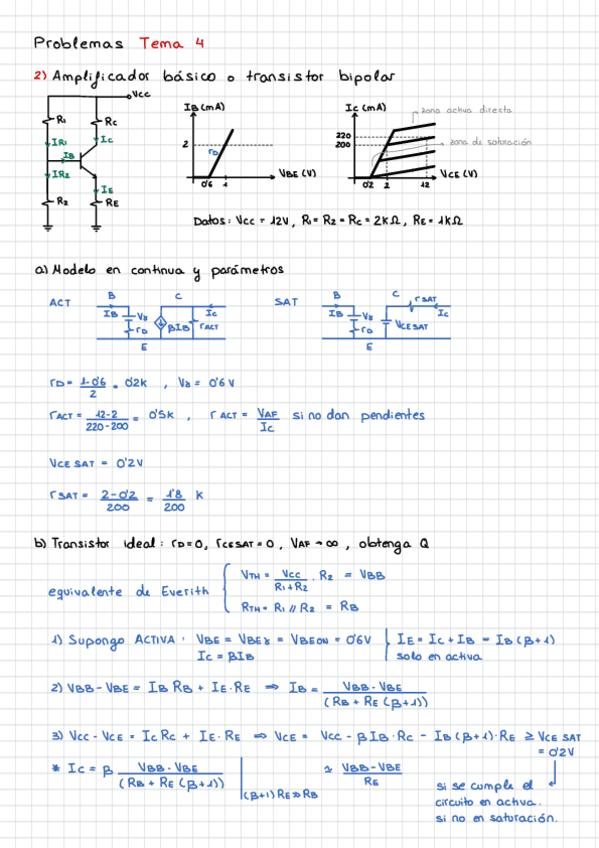 Problemas Tema 4
2) Amplificador básico o transistor bipolar
Vcc
R1
Rc
IR1
Ic
IB
IR2
IE
R2
RE
IB (mA)
2
rD
0'6 1
VBE (V)
Ic (mA)
zona activa directa
220
200
zona de saturación
0'2 2 12
VCE (V)
Datos: Vcc = 12V, R1 = R2 = Rc = 2KΩ, RE = 1KΩ
a) Modelo en continua y parámetros
ACT
B C
IB Vγ Ic
rD βIB rACT
E
SAT
B C rSAT
IB Vγ Ic
rD VCE SAT
E
rD = 1-0'6 / 2 = 0'2K , Vγ = 0'6V
rACT = 12-2 / 220-200 = 0'5K , rACT = VAF / Ic si no dan pendientes
VCE SAT = 0'2V
rSAT = 2-0'2 / 200 = 1'8 / 200 K
b) Transistor ideal: rD=0, rCESAT=0, VAF → ∞, obtenga Q
equivalente de Everith
VTH = Vcc / R1+R2 . R2 = VBB
RTH = R1 // R2 = RB
1) Supongo ACTIVA: VBE = VBEγ = VBEON = 0'6V | IE = Ic + IB = IB(β+1)
Ic = βIB solo en activa
2) VBB - VBE = IB RB + IE·RE ⇒ IB = VBB - VBE / (RB + RE(β+1))
3) Vcc - VCE = Ic Rc + IE·RE ⇒ VCE = Vcc - βIB·Rc - IB(β+1)·RE ≥ VCE SAT
= 0'2V
* Ic = β VBB - VBE / (RB + RE(β+1)) | (β+1)RE≫RB ≃ VBB - VBE / RE
si se cumple el
circuito en activa.
si no en saturación.